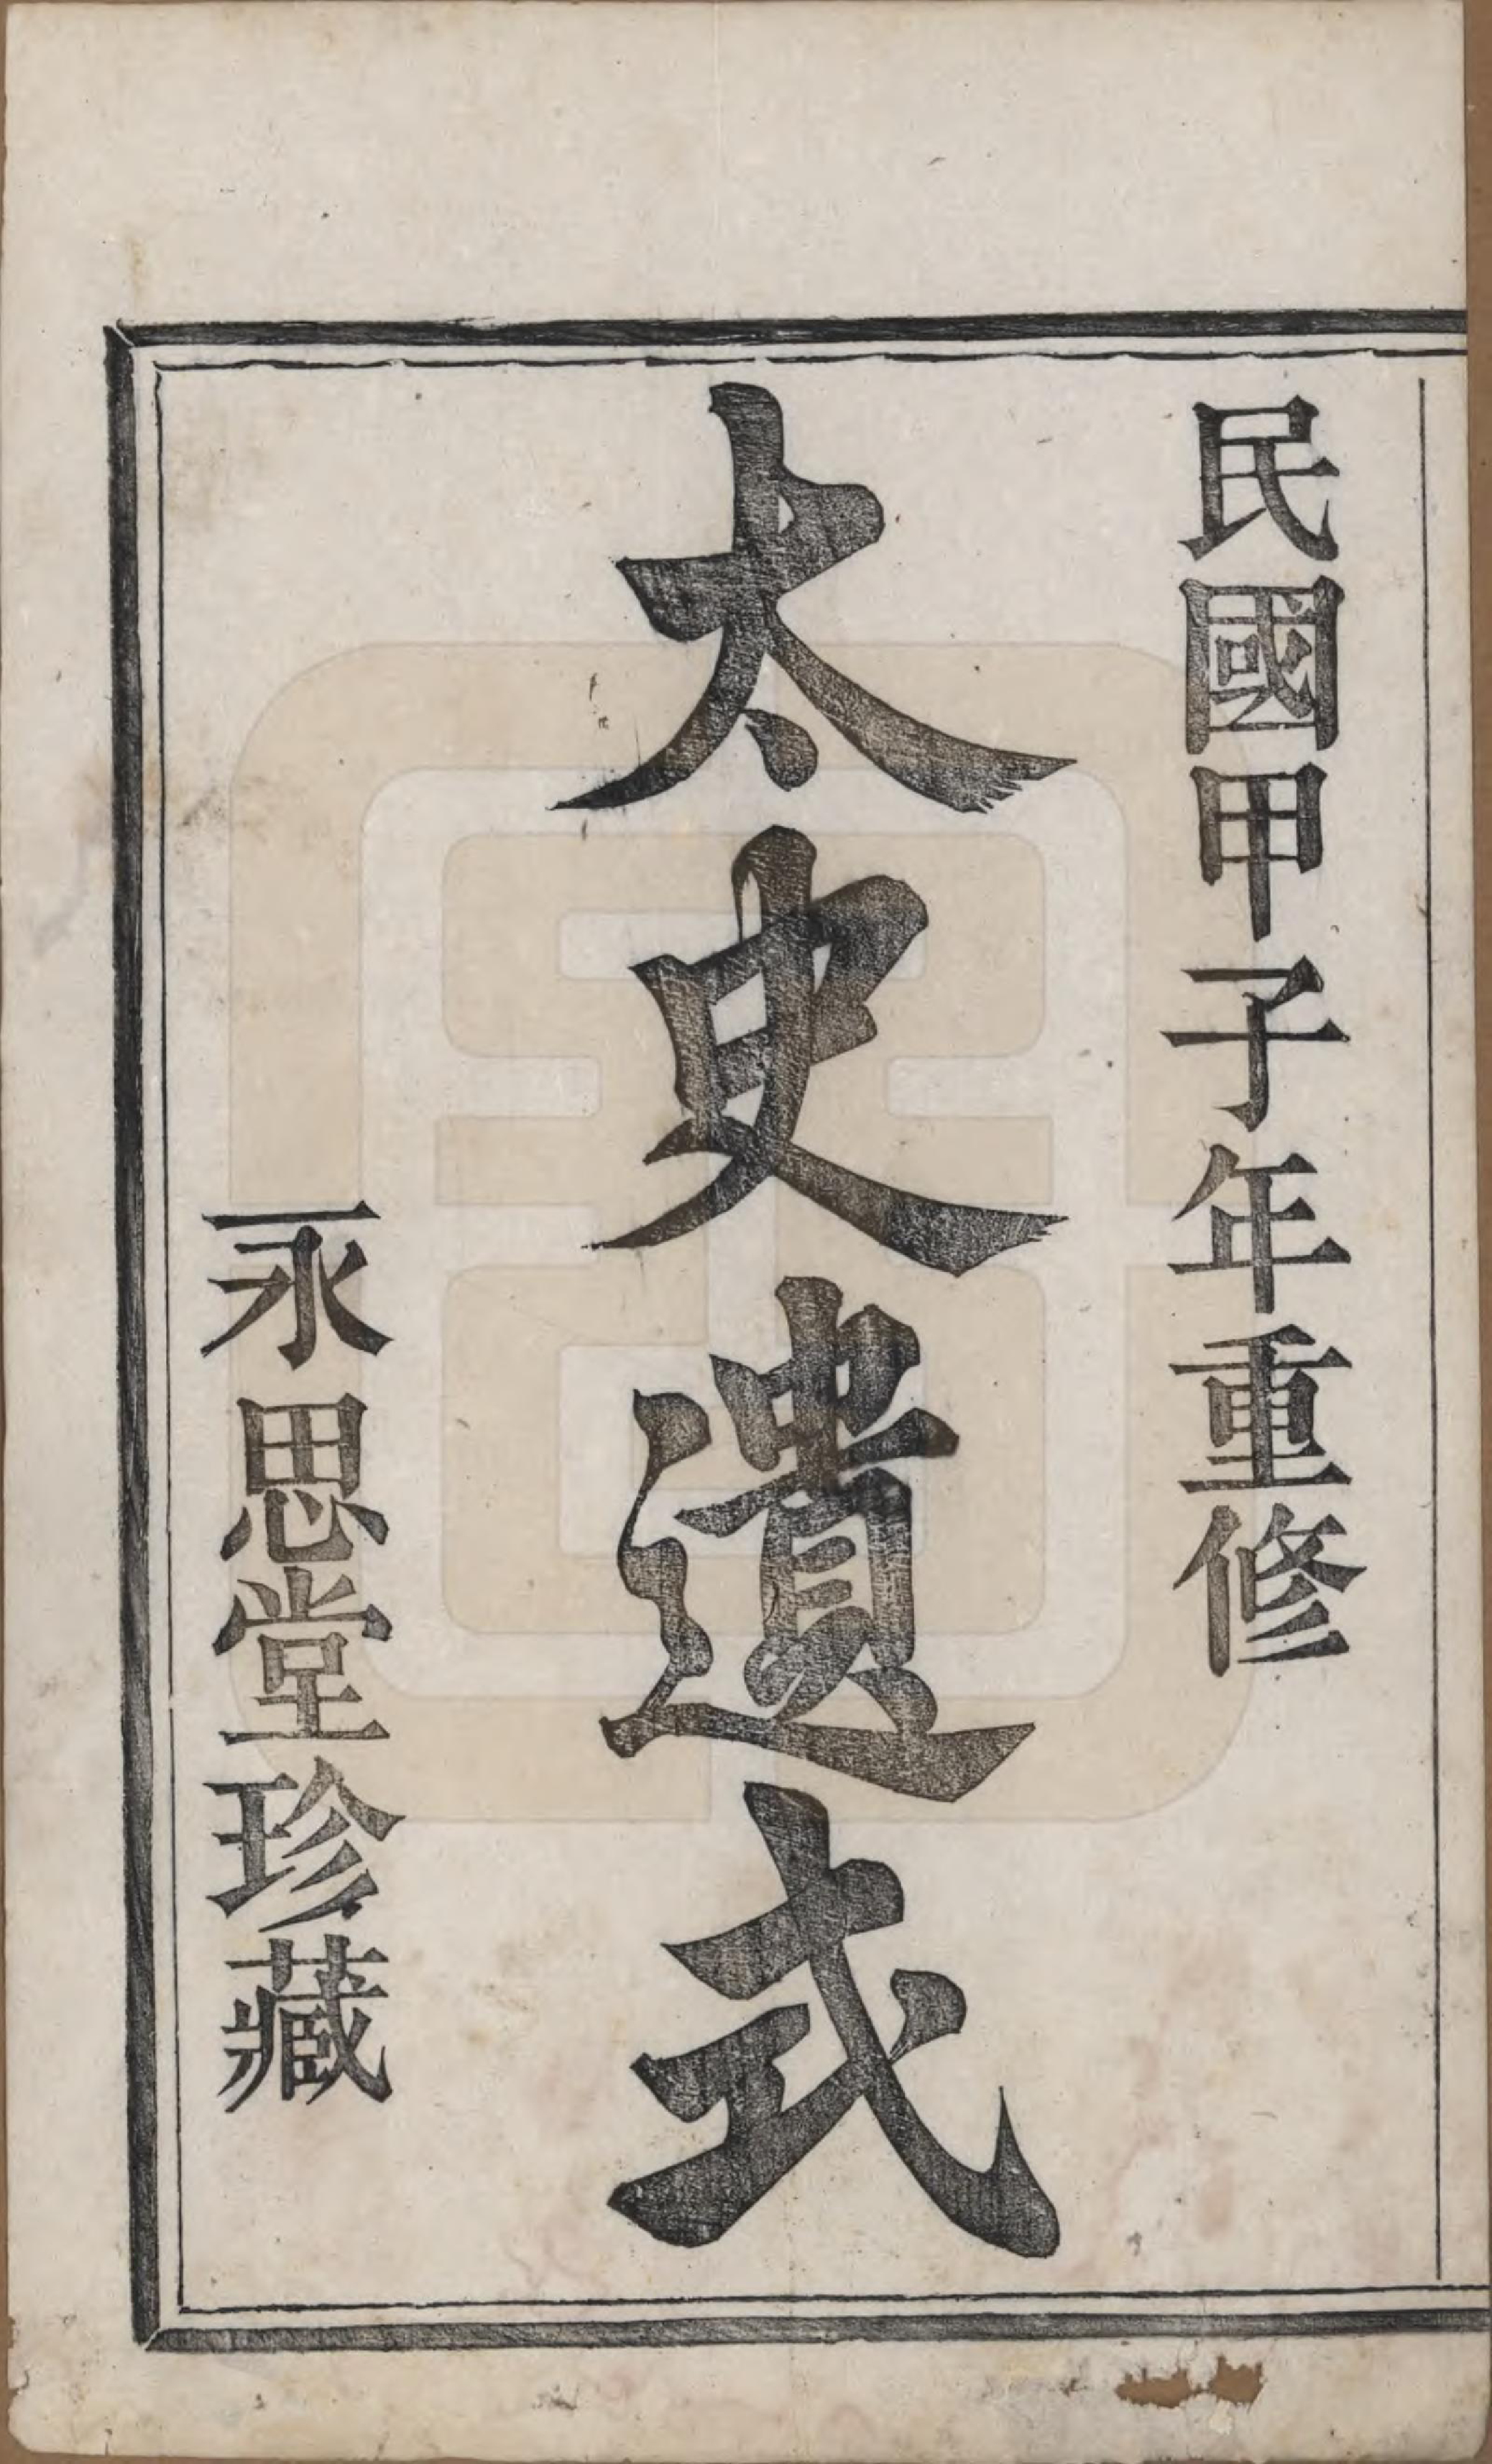 民國甲子年重修
太史遺式
永思堂珍藏